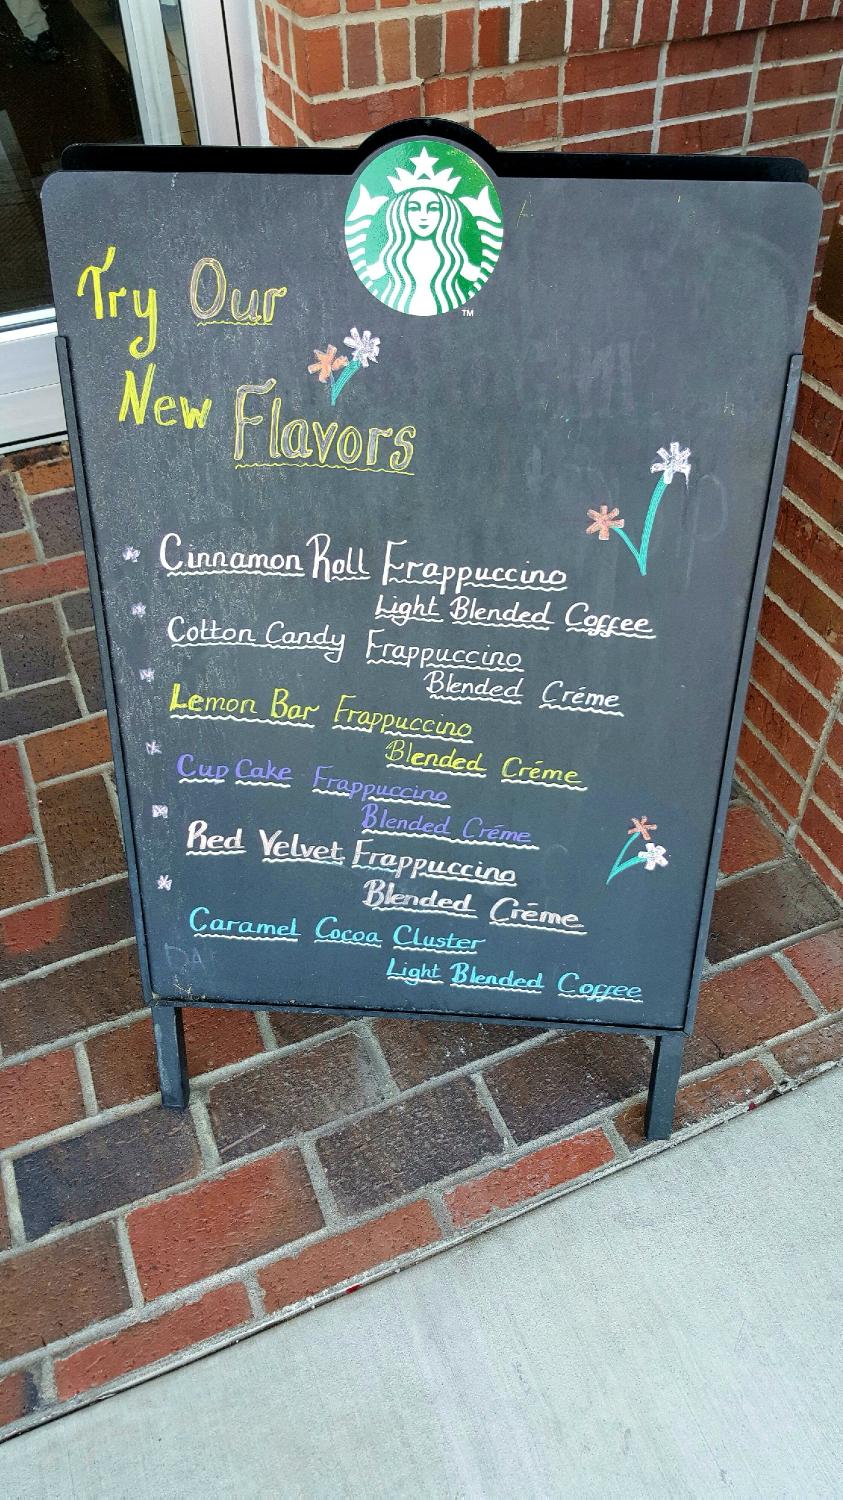 Try Our
New Flavors
Cinnamon Roll Frappuccino
Light Blended Coffee
Cotton Candy Frappuccino
Blended Créme
Lemon Bar Frappuccino
Blended Créme
Cup Cake Frappuccino
Blended Créme
Red Velvet Frappuccino
Blended Créme
Caramel Cocoa Cluster
Light Blended Coffee
TM